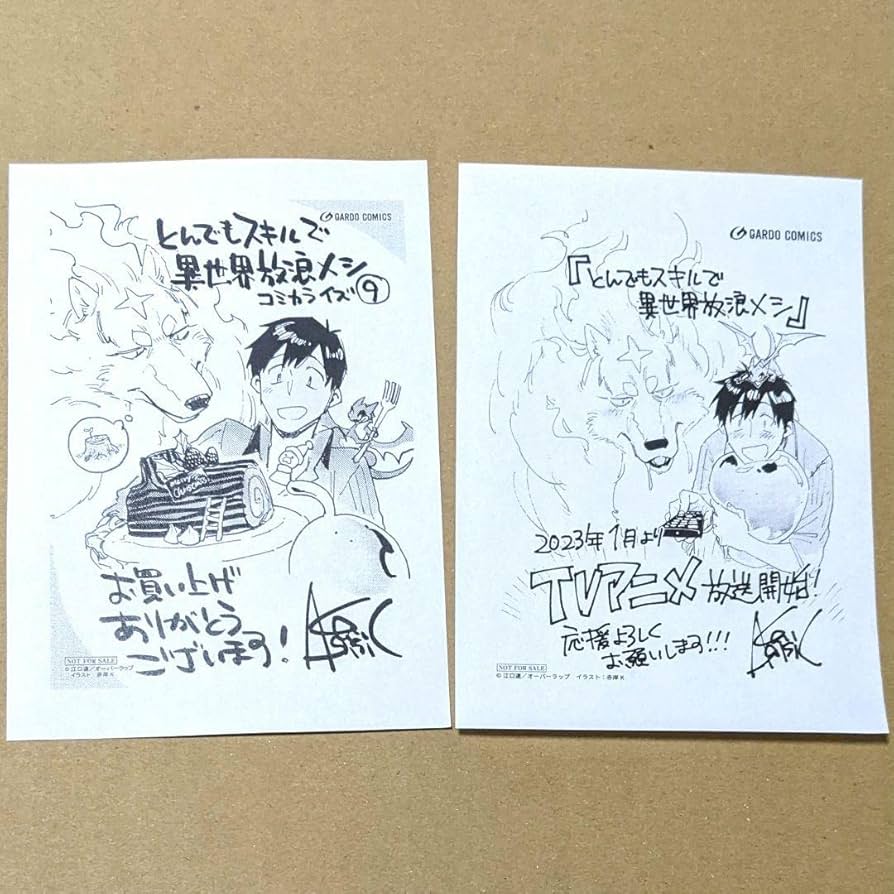 GARDO COMICS
とんでもスキルで
異世界放浪メシ
コミカライズ⑨
Merry
Christmas
お買い上げ
ありがとう
ございます!
NOT FOR SALE
©江口連/オーバーラップ
イラスト:赤岸K
GARDO COMICS
『とんでもスキルで
異世界放浪メシ』
2023年1月より
TVアニメ放送開始!
応援よろしく
お願いします!!!
NOT FOR SALE
©江口連/オーバーラップ イラスト:赤岸K